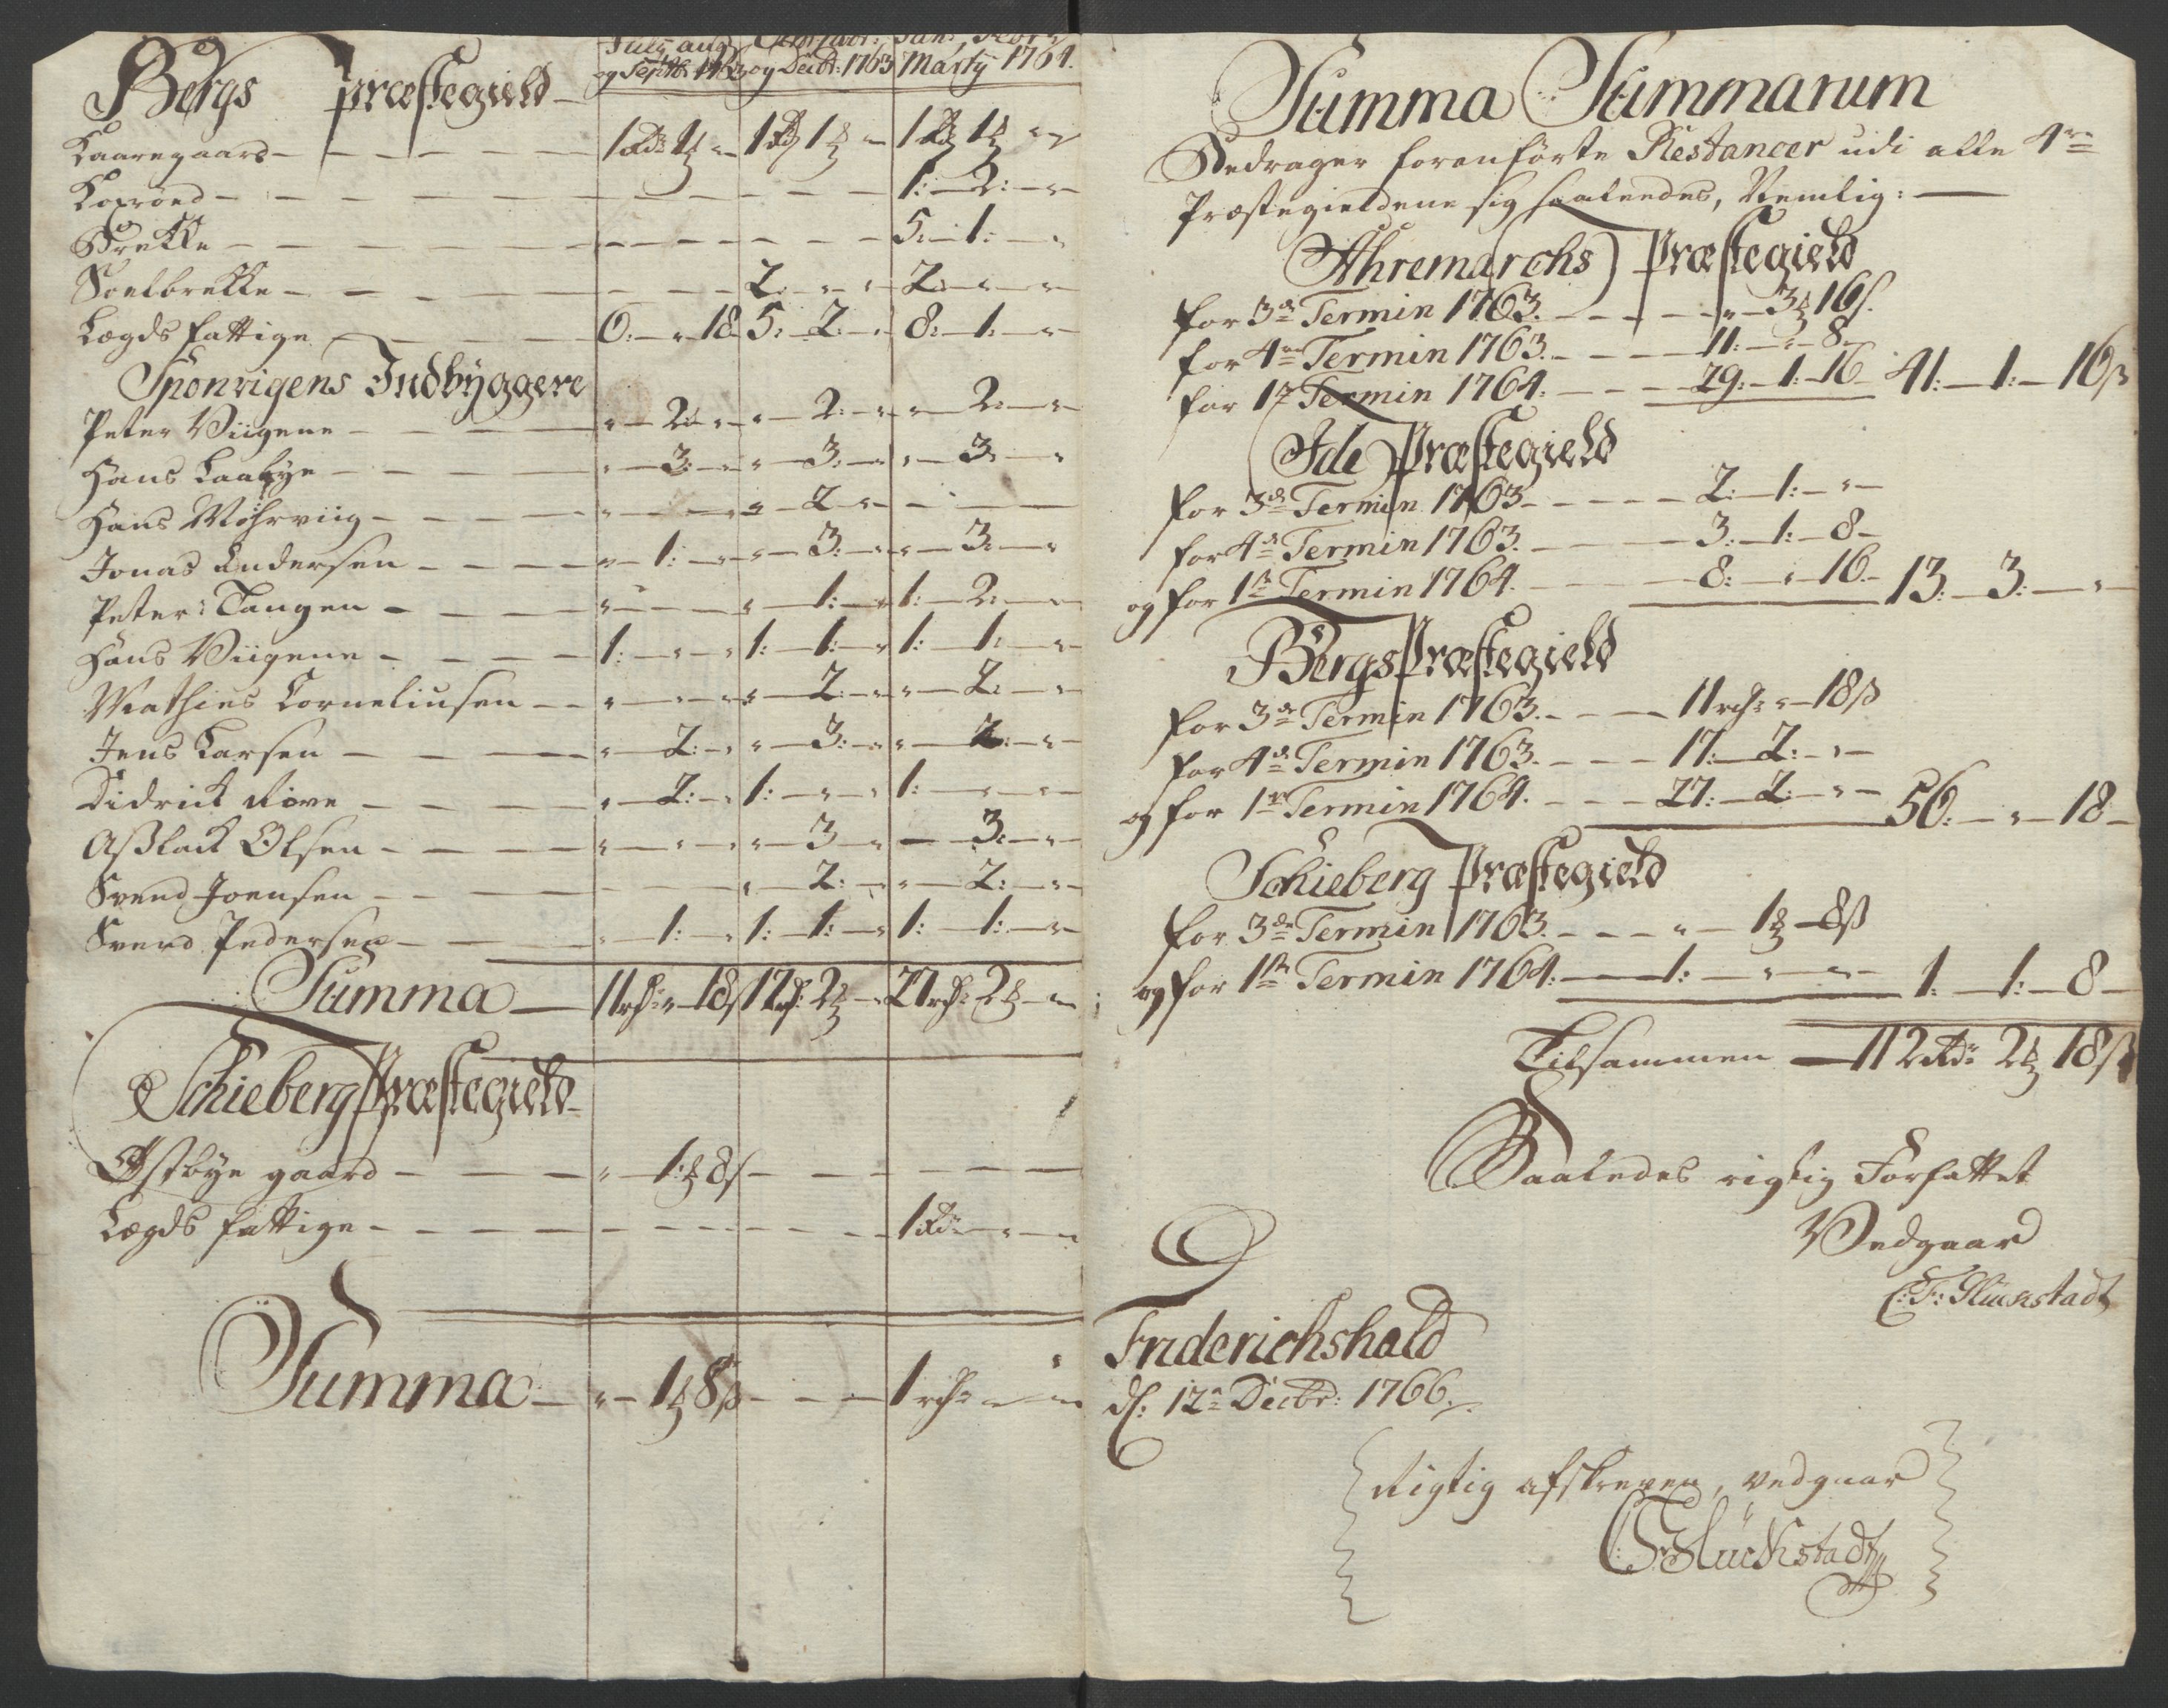 July aug Octbr Novbr: Jan: Febr:
og Septbr 1763 og Decbr: 1763 Marty 1764.
Bergs Præstegield
Kaaregaard — 1 Rd 1 ₰ " — 1 Rd 1 ₰ — 1 Rd 1 ₰ "
Torrød — — — 1: 2: "
Brekke — — — 5: 1: "
Soelbrekke — — 2: " " 2: " "
Lægds fattige — 6: " 18 5: 2: " 8: 1: "
Sponvigens Indbyggere
Peter Viigene — " 2: " " 2: " " 2: "
Hans Laabye — " 3: " " 3: " " 3: "
Hans Möhrviig — " — " 2 " —
Jonas Andersen — " 1: " " 3: " " 3: "
Peter Tangen — " — " 1: " 1: 2: "
Hans Viigene — 1: " " 1: 1: " 1: 1: "
Mathies Corneliusen — " " " 2: " " 2: "
Jens Larsen — " 2: " " 3: " " 2: "
Didrick Rove — " 2: " 1: " " 1: " "
Aslack Olsen — " " " " 3 " — 3: "
Svend Joensen — — " 2: " " 2: "
Svend Pedersen — " 1: " 1: 1: " 1: 1: "
Summa — 11 rd " 18 ß 17 rd 2 ₰ " 27 rd 2 ₰ "
Schieberg Præstegield
Østbye gaard — " 1 ₰ 8 ß — —
Lægds fattige — — — 1 Rd " "
Summa — " 1 ₰ 8 ß — 1 rd " "
Summa Summarum
Bedrager foranførte Restancer udi alle 4re
Præstegieldene sig saaledes, Nemlig:
Ahremarchs Præstegield
for 3de Termin 1763. — " 3 ₰ 16 ß.
for 4de Termin 1763. — 11: " 8
for 1te Termin 1764. — 29: 1: 16 41: 1: 16 ß
Ide Præstegield
for 3de Termin 1763 — 2: 1: "
for 4de Termin 1763. — 3: 1: 8
og for 1te Termin 1764. — 8: " 16 13: 3: "
Bergs Præstegield
for 3de Termin 1763. — 11 rd " 18 ß
for 4de Termin 1763. — 17: 2: "
og for 1te Termin 1764. — 27: 2: " 56: " 18
Schieberg Præstegield
for 3de Termin 1763. — " 1 ₰ 8 ß
og for 1te Termin 1764: — 1: " " 1: 1: 8
Tilsammen — 112 Rd 2 ₰ 18 ß
Saaledes rigtig Forfattet
Vedgaar
C: F: Glückstadt
Friderichshald
d: 12te Decbr: 1766.
Rigtig afskreven, vedgaar
CF Glückstadt